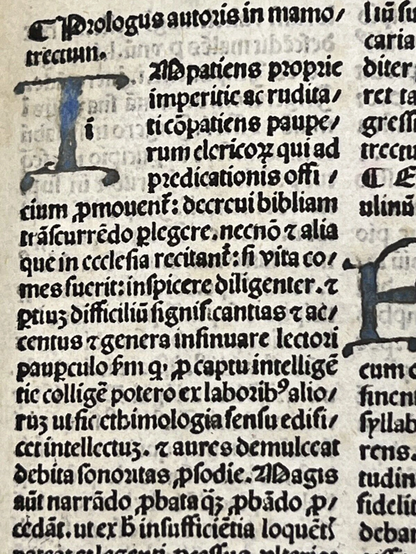 ¶ Prologus autoris in mamo/
trectum.
I i Mpatiens proprie
imperitie ac rudita/
ti cōpatiens paupe/
rum clericoꝝ qui ad
predicationis offi/
cium ꝓmouent᷑: decreui bibliam
trāscurrēdo ꝑlegere. necnō ⁊ alia
que in ecclesia recitant᷑: si vita co/
mes fuerit: inspicere diligenter. ⁊
ꝑtiuʒ difficiliū significantias ⁊ ac/
centus ⁊ genera insinuare lectori
pauꝑculo ẜm ꝙ ꝓ captu intelligē
tie colligē potero ex laboribꝰ alio/
ruʒ ut sic ethimologia sensu edifi/
cet intellectuʒ. ⁊ aures demulceat
debita sonoritas ꝓsodie. Magis
aūt narrādo ꝓbata qʒ̄ ꝓbādo ꝓ/
cēdāt. ut ex h̄ insufficiētia loquēt᷑
liū su
caria
diter
ret ta
gressi
trectu
¶ E
ulinū
E
eum c
finent
syllab
rens.
tudin
fideliu
debat